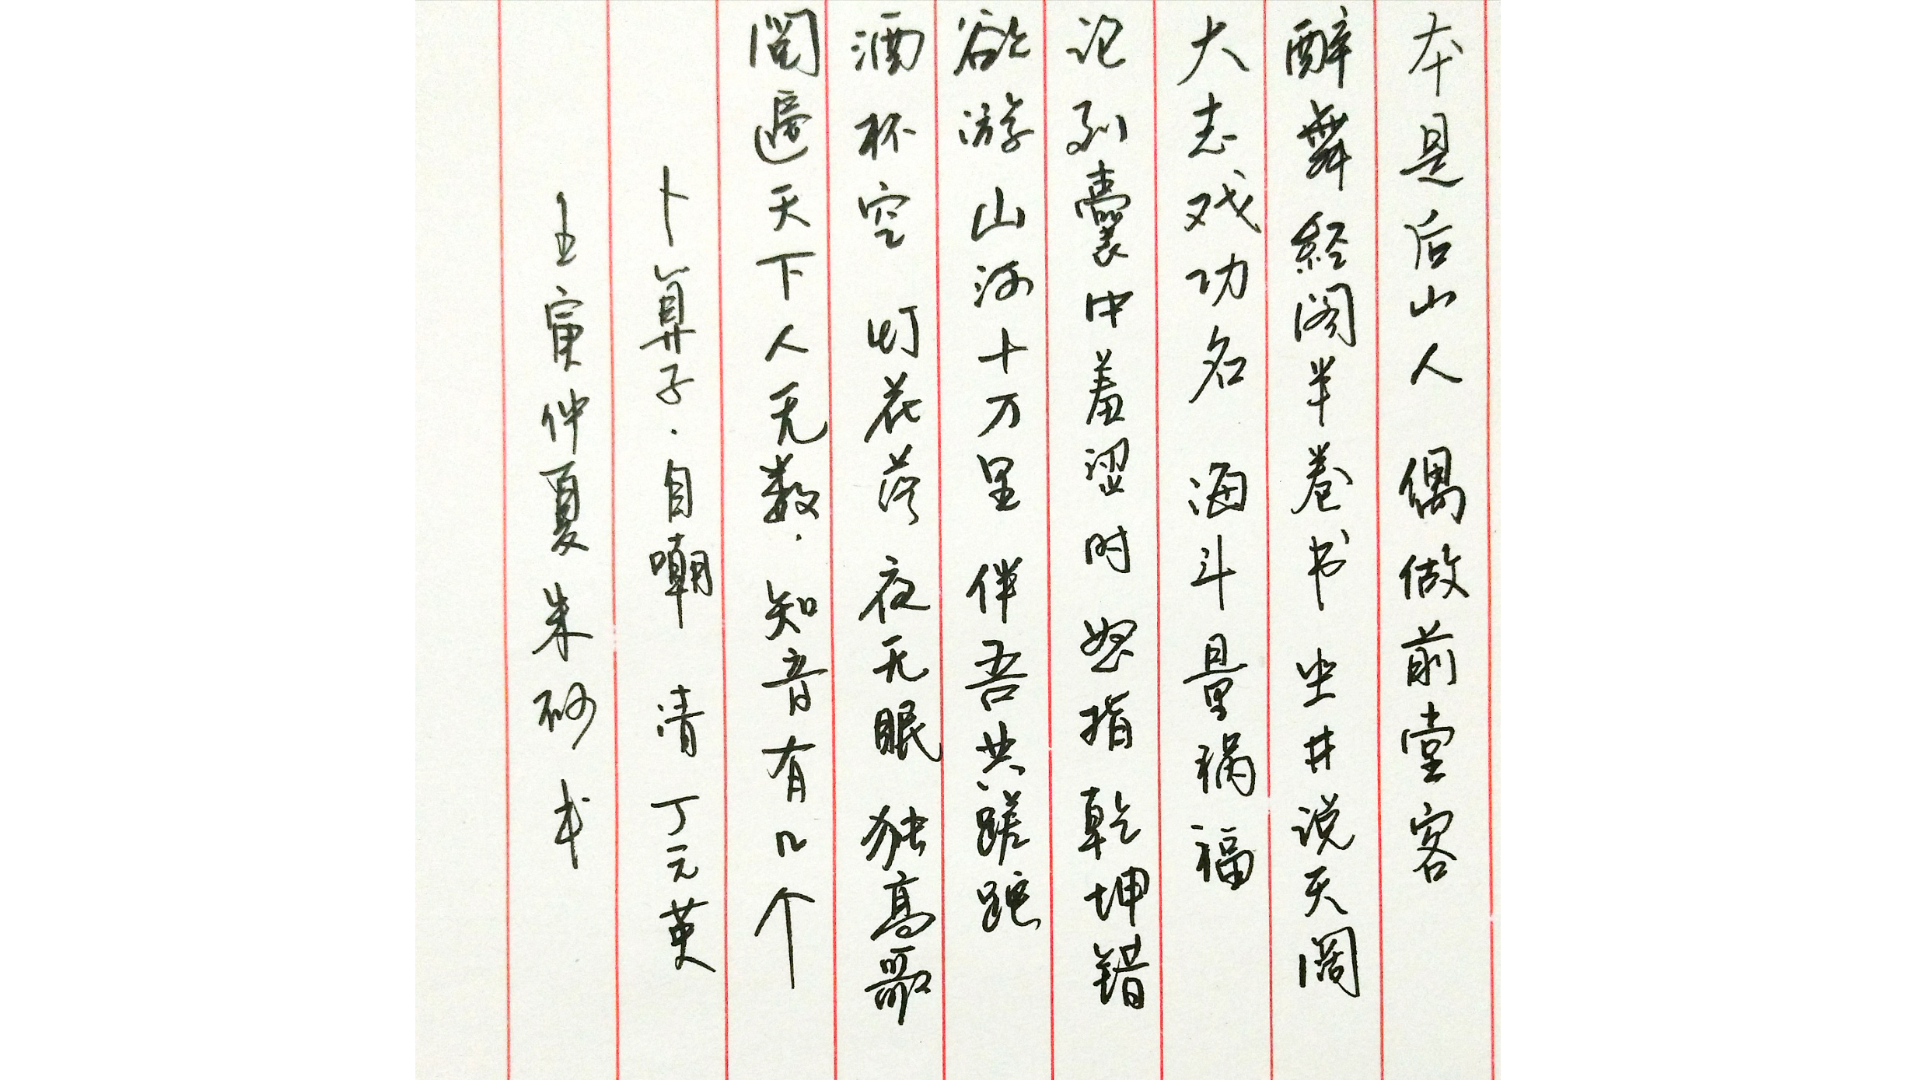 本是后山人 偶做前堂客
醉舞经阁半卷书 坐井说天阔
大志戏功名 海斗量祸福
论到囊中羞涩时 怒指乾坤错
欲游山河十万里 伴吾共蹉跎
酒杯空 灯花落 夜无眠 独高歌
阅遍天下人无数·知音有几个
卜算子·自嘲 清 丁元英
壬寅仲夏朱砂书